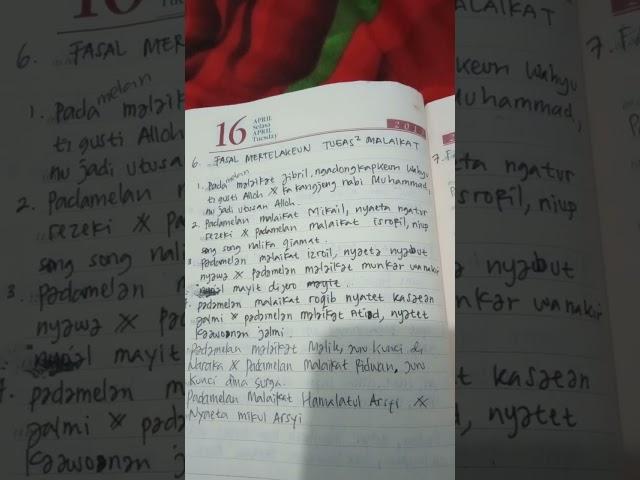 16
APRIL
Selasa
APRIL
Tuesday
201
6. FASAL MERTELAKEUN TUGAS² MALAIKAT
1. Padamelan malaikat Jibril, ngadongkapkeun Wahyu
ti gusti Alloh X ka kangjeng nabi Muhammad,
nu jadi utusan Alloh.
2. Padamelan malaikat Mikail, nyaeta ngatur
rezeki X padamelan malaikat Isrofil, niup
song song nalika qiamat.
3. padamelan malaikat izroil, nyaeta nyabut
nyawa X padamelan malaikat munkar wanakir
mayit dijero mayit.
padamelan malaikat roqib nyatet kasaean
jalmi X padamelan malaikat Atid, nyatet
kaawonan jalmi.
padamelan malaikat Malik, juru kunci di
Naraka X Padamelan malaikat Ridwan, juru
kunci dina surga.
Padamelan Malaikat Hamalatul Arsyi X
Nyaeta mikul Arsyi
7. F